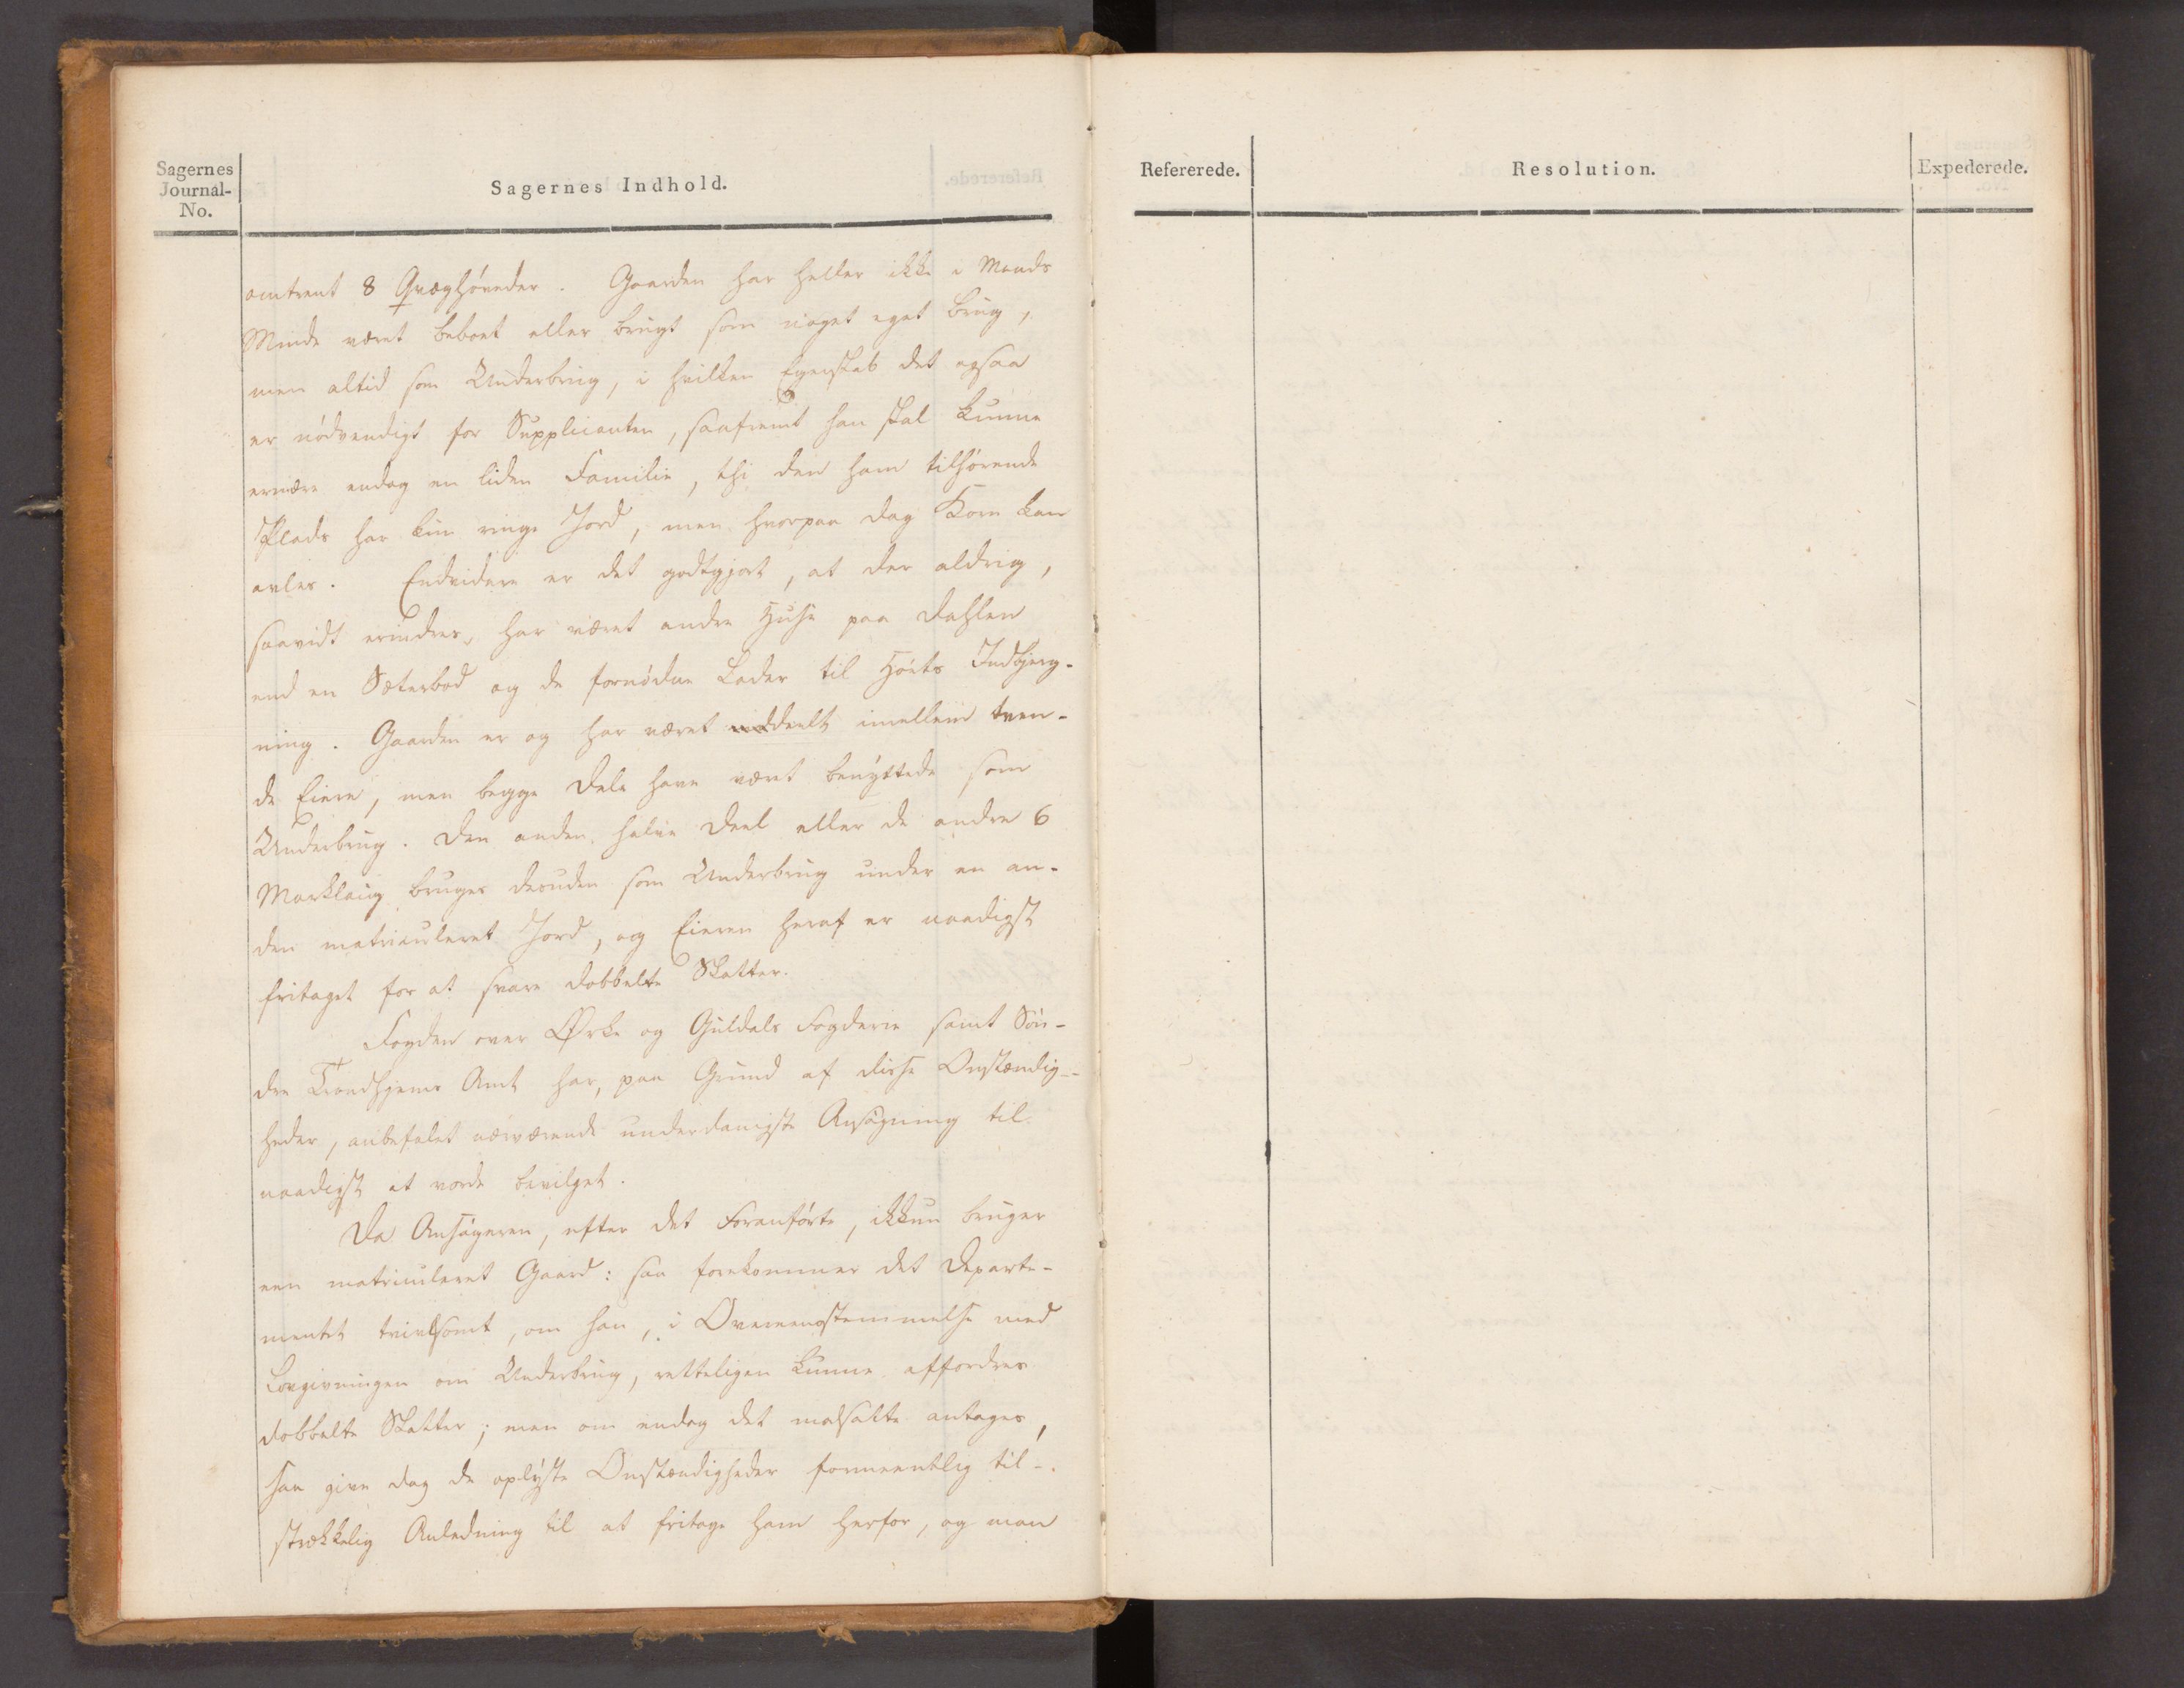 Sagernes
Journal-
No.
Sagernes Indhold.
Refererede.
Resolution.
Expederede.
omtrent 8 Qvæghöveder. Gaarden har heller ikke i Mands
Minde været beboet eller brugt som noget eget Brug,
men altid som Underbrug, i hvilken Egenskab det ogsaa
er nödvendigt for Supplicanten, saafremt han skal kunne
ernære endog en liden Familie, thi den ham tilhörende
Plads har kun ringe Jord, men hvorpaa dog Korn kan
avles. Endvidere er det godtgjort, at der aldrig,
saavidt erindres, har været andre Huse paa Dahlen
end en Sæterbod og de fornödne Lader til Höets Indbjerg-
ning. Gaarden er og har været uddeelt imellem tven-
de Eiere, men begge Dele have været benyttede som
Underbrug. Den anden halve Deel eller de andre 6
Marklaug bruges desuden som Underbrug under en an-
den matriculeret Jord, og Eieren heraf er naadigst
fritaget for at svare dobbelte Skatter.
Fogden over Ørke og Guldals Fogderie samt Sön-
dre Trondhjems Amt har, paa Grund af disse Omstændig-
heder, anbefalet nærværende underdanigste Ansögning til
naadigst at vorde bevilget.
Da Ansögeren, efter det Foranförte, ikkun bruger
een matriculeret Gaard: saa forekommer det Departe-
mentet tvivlsomt, om han, i Overeensstemmelse med
Lovgivningen om Underbrug, retteligen kunne affordres
dobbelte Skatter; men om endog det modsatte antages,
saa give dog de oplyste Omstændigheder formeentlig til-
strækkelig Anledning til at fritage ham herfor, og man